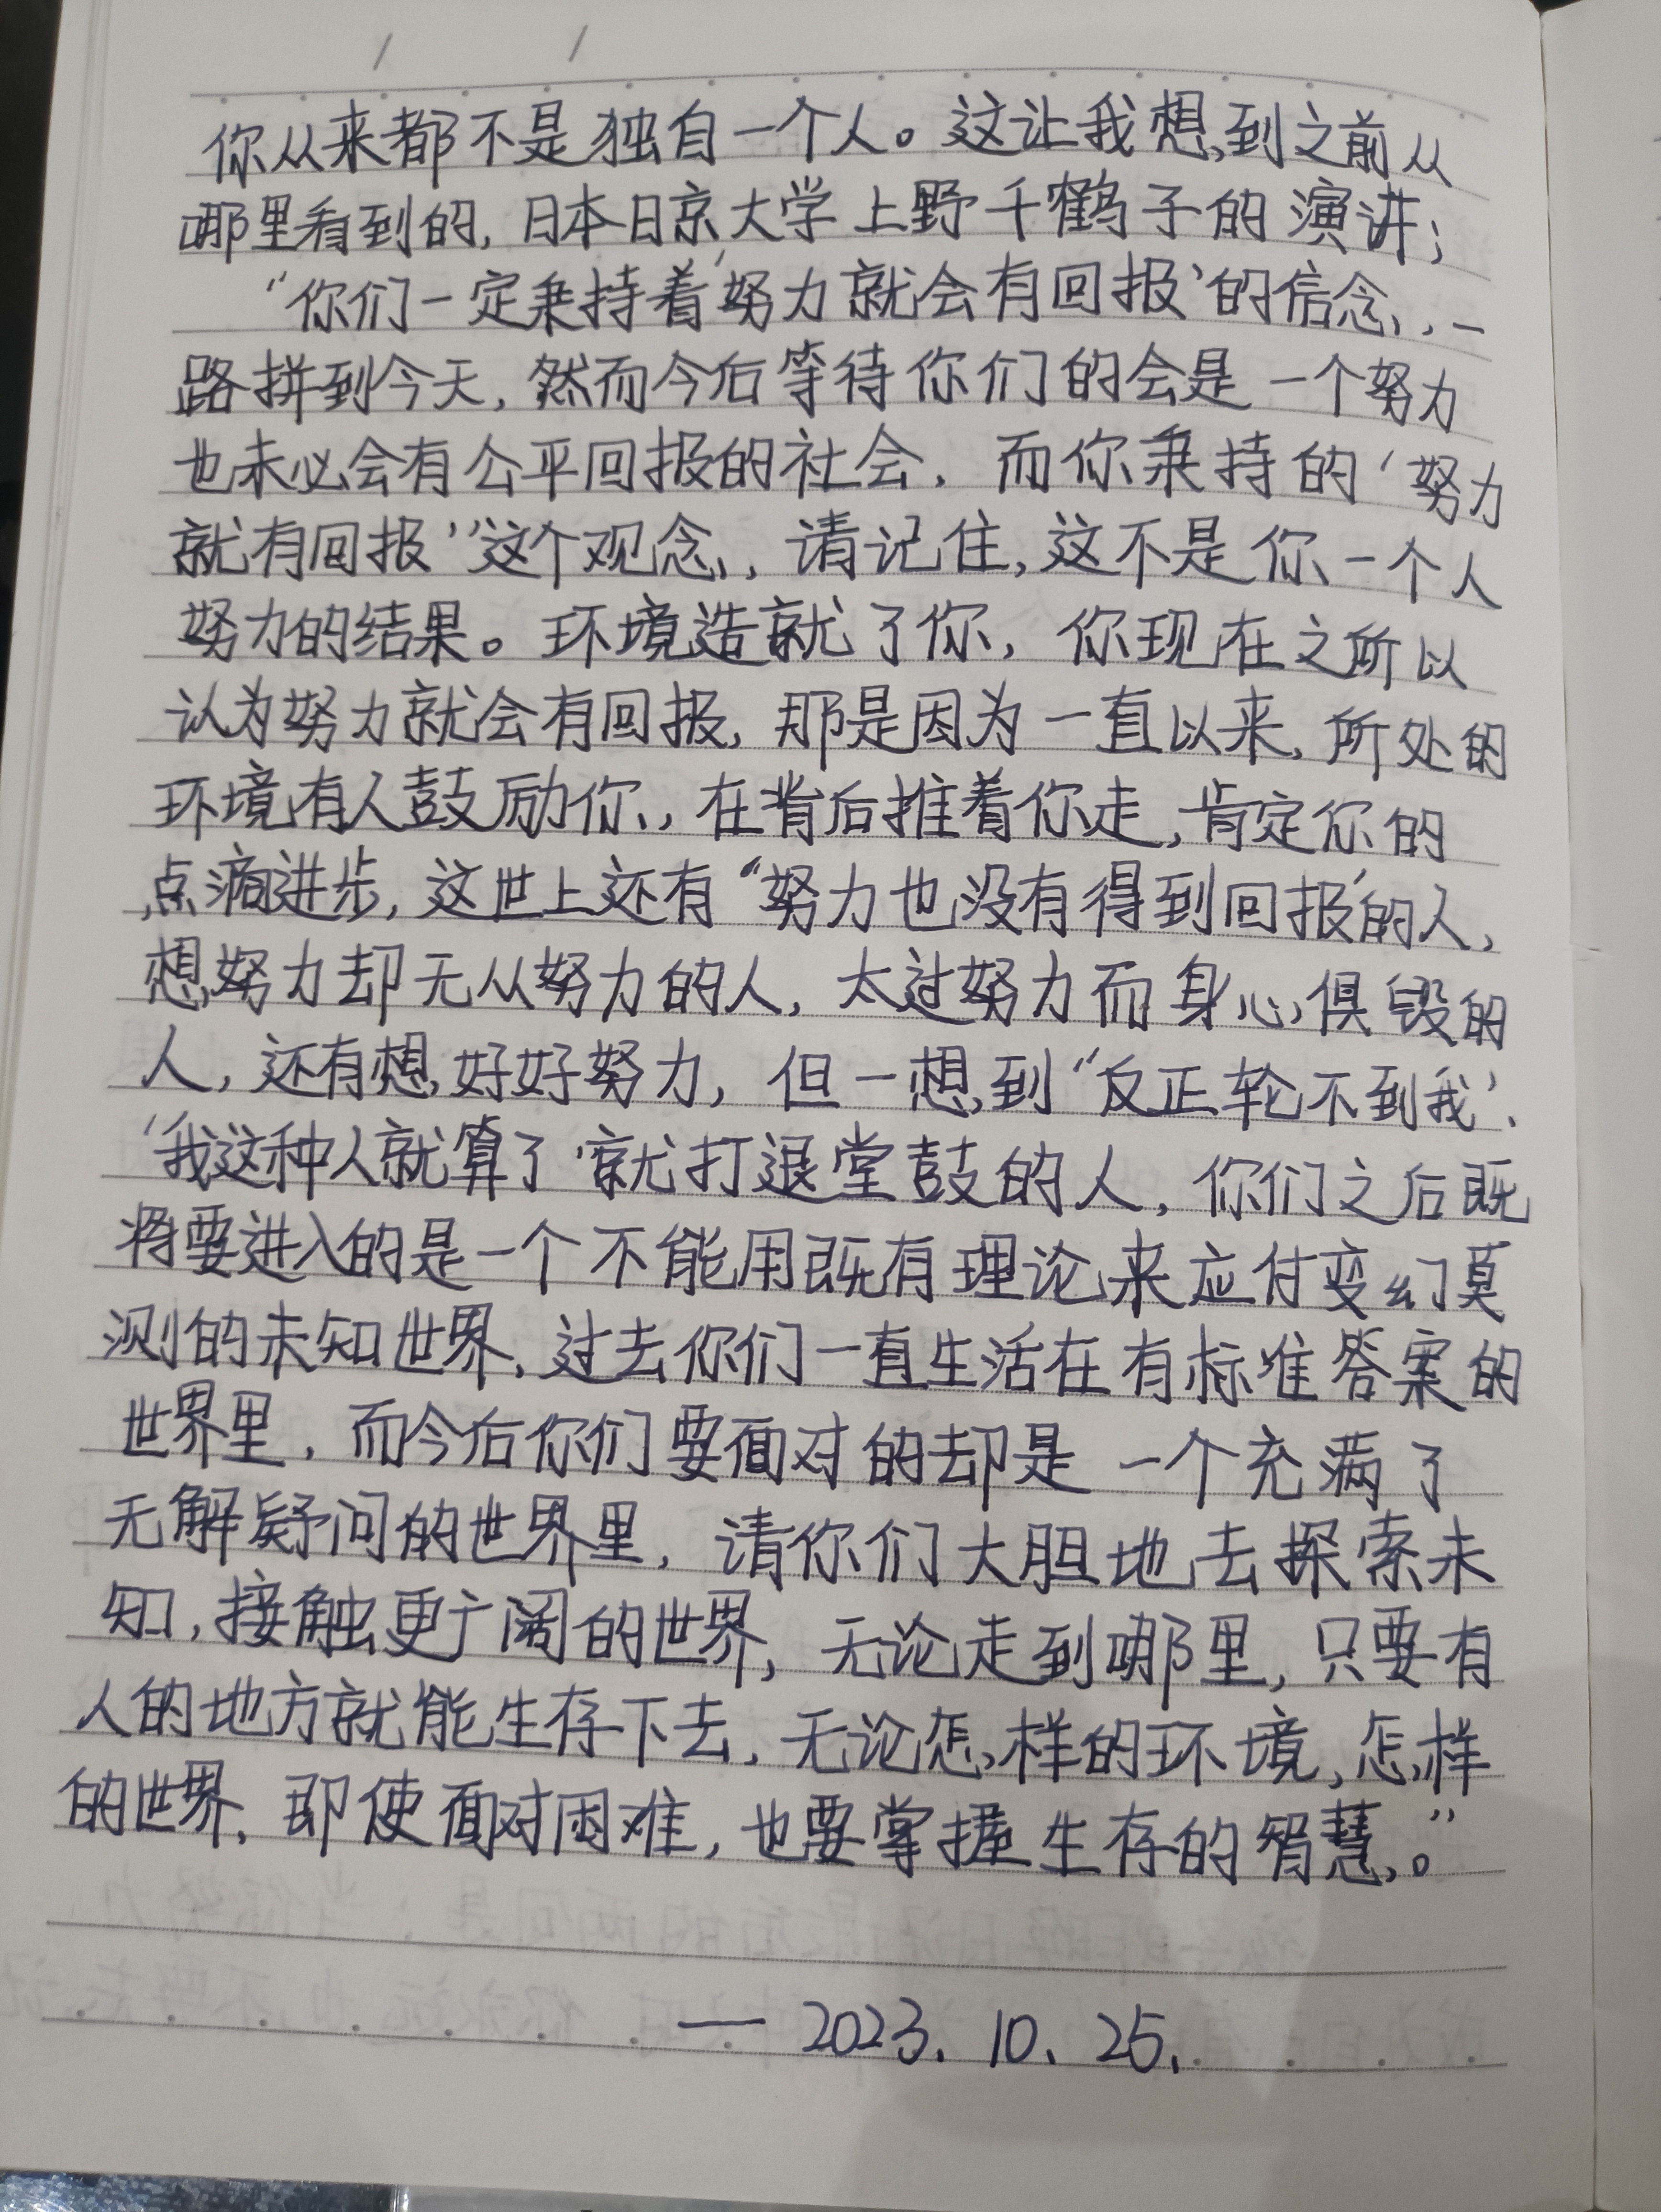 你从来都不是独自一个人。这让我想到之前从
哪里看到的,日本日京大学上野千鹤子的演讲;
“你们一定秉持着‘努力就会有回报’的信念,,一
路拼到今天,然而今后等待你们的会是一个努力
也未必会有公平回报的社会,而你秉持的‘努力
就有回报’”这个观念,,请记住,这不是你一个人
努力的结果。环境造就了你,你现在之所以
认为努力就会有回报,那是因为一直以来,所处的
环境有人鼓励你,,在背后推着你走,肯定你的
点滴进步,这世上还有“努力也没有得到回报’的人,
想努力却无从努力的人,太过努力而身心俱毁的
人,还有想好好努力,但一想到“反正轮不到我’、
‘我这种人就算了‘就打退堂鼓的人,你们之后既
将要进入的是一个不能用既有理论来应付变幻莫
测的未知世界,过去你们一直生活在有标准答案的
世界里,而今后你们要面对的却是一个充满了
无解疑问的世界里,请你们大胆地去探索未
知,接触更广阔的世界,无论走到哪里,只要有
人的地方就能生存下去,无论怎样的环境,怎样
的世界,即使面对困难,也要掌握生存的智慧。”
— 2023. 10. 25.